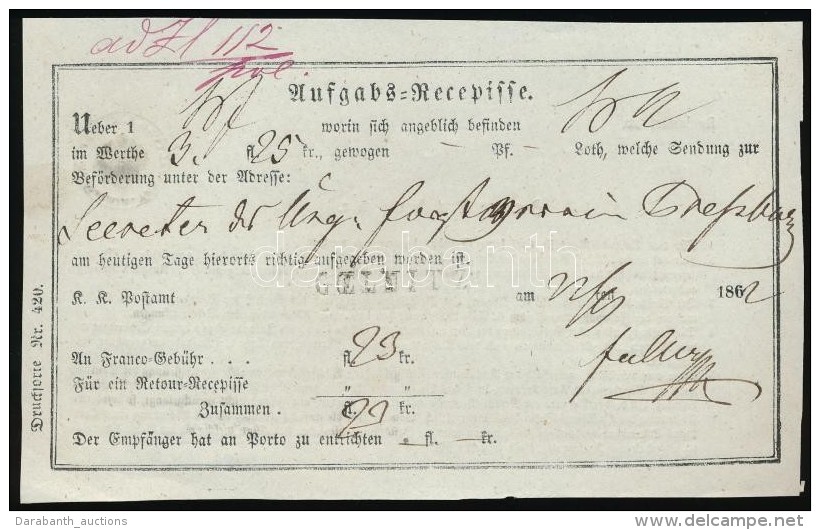 ad Zl 112
Aufgabs=Recepisse.
Ueber 1 worin sich angeblich befinden
im Werthe 3. fl 25 kr., gewogen — Pf. — Loth, welche Sendung zur
Beförderung unter der Adresse:
Secreter ds Ung: Forstverein Preßburg
am heutigen Tage hierorts richtig aufgegeben worden ist.
GÖLNITZ
K. K. Postamt am ten 1862
An Franco=Gebühr . . . fl. 23 kr.
Für ein Retour=Recepisse " "
Zusammen . fl. 23 kr.
Der Empfänger hat an Porto zu entrichten — fl. — kr.
Drucksorte Nr. 420.
darabanth
Darabanth_auctions
delcampe.net